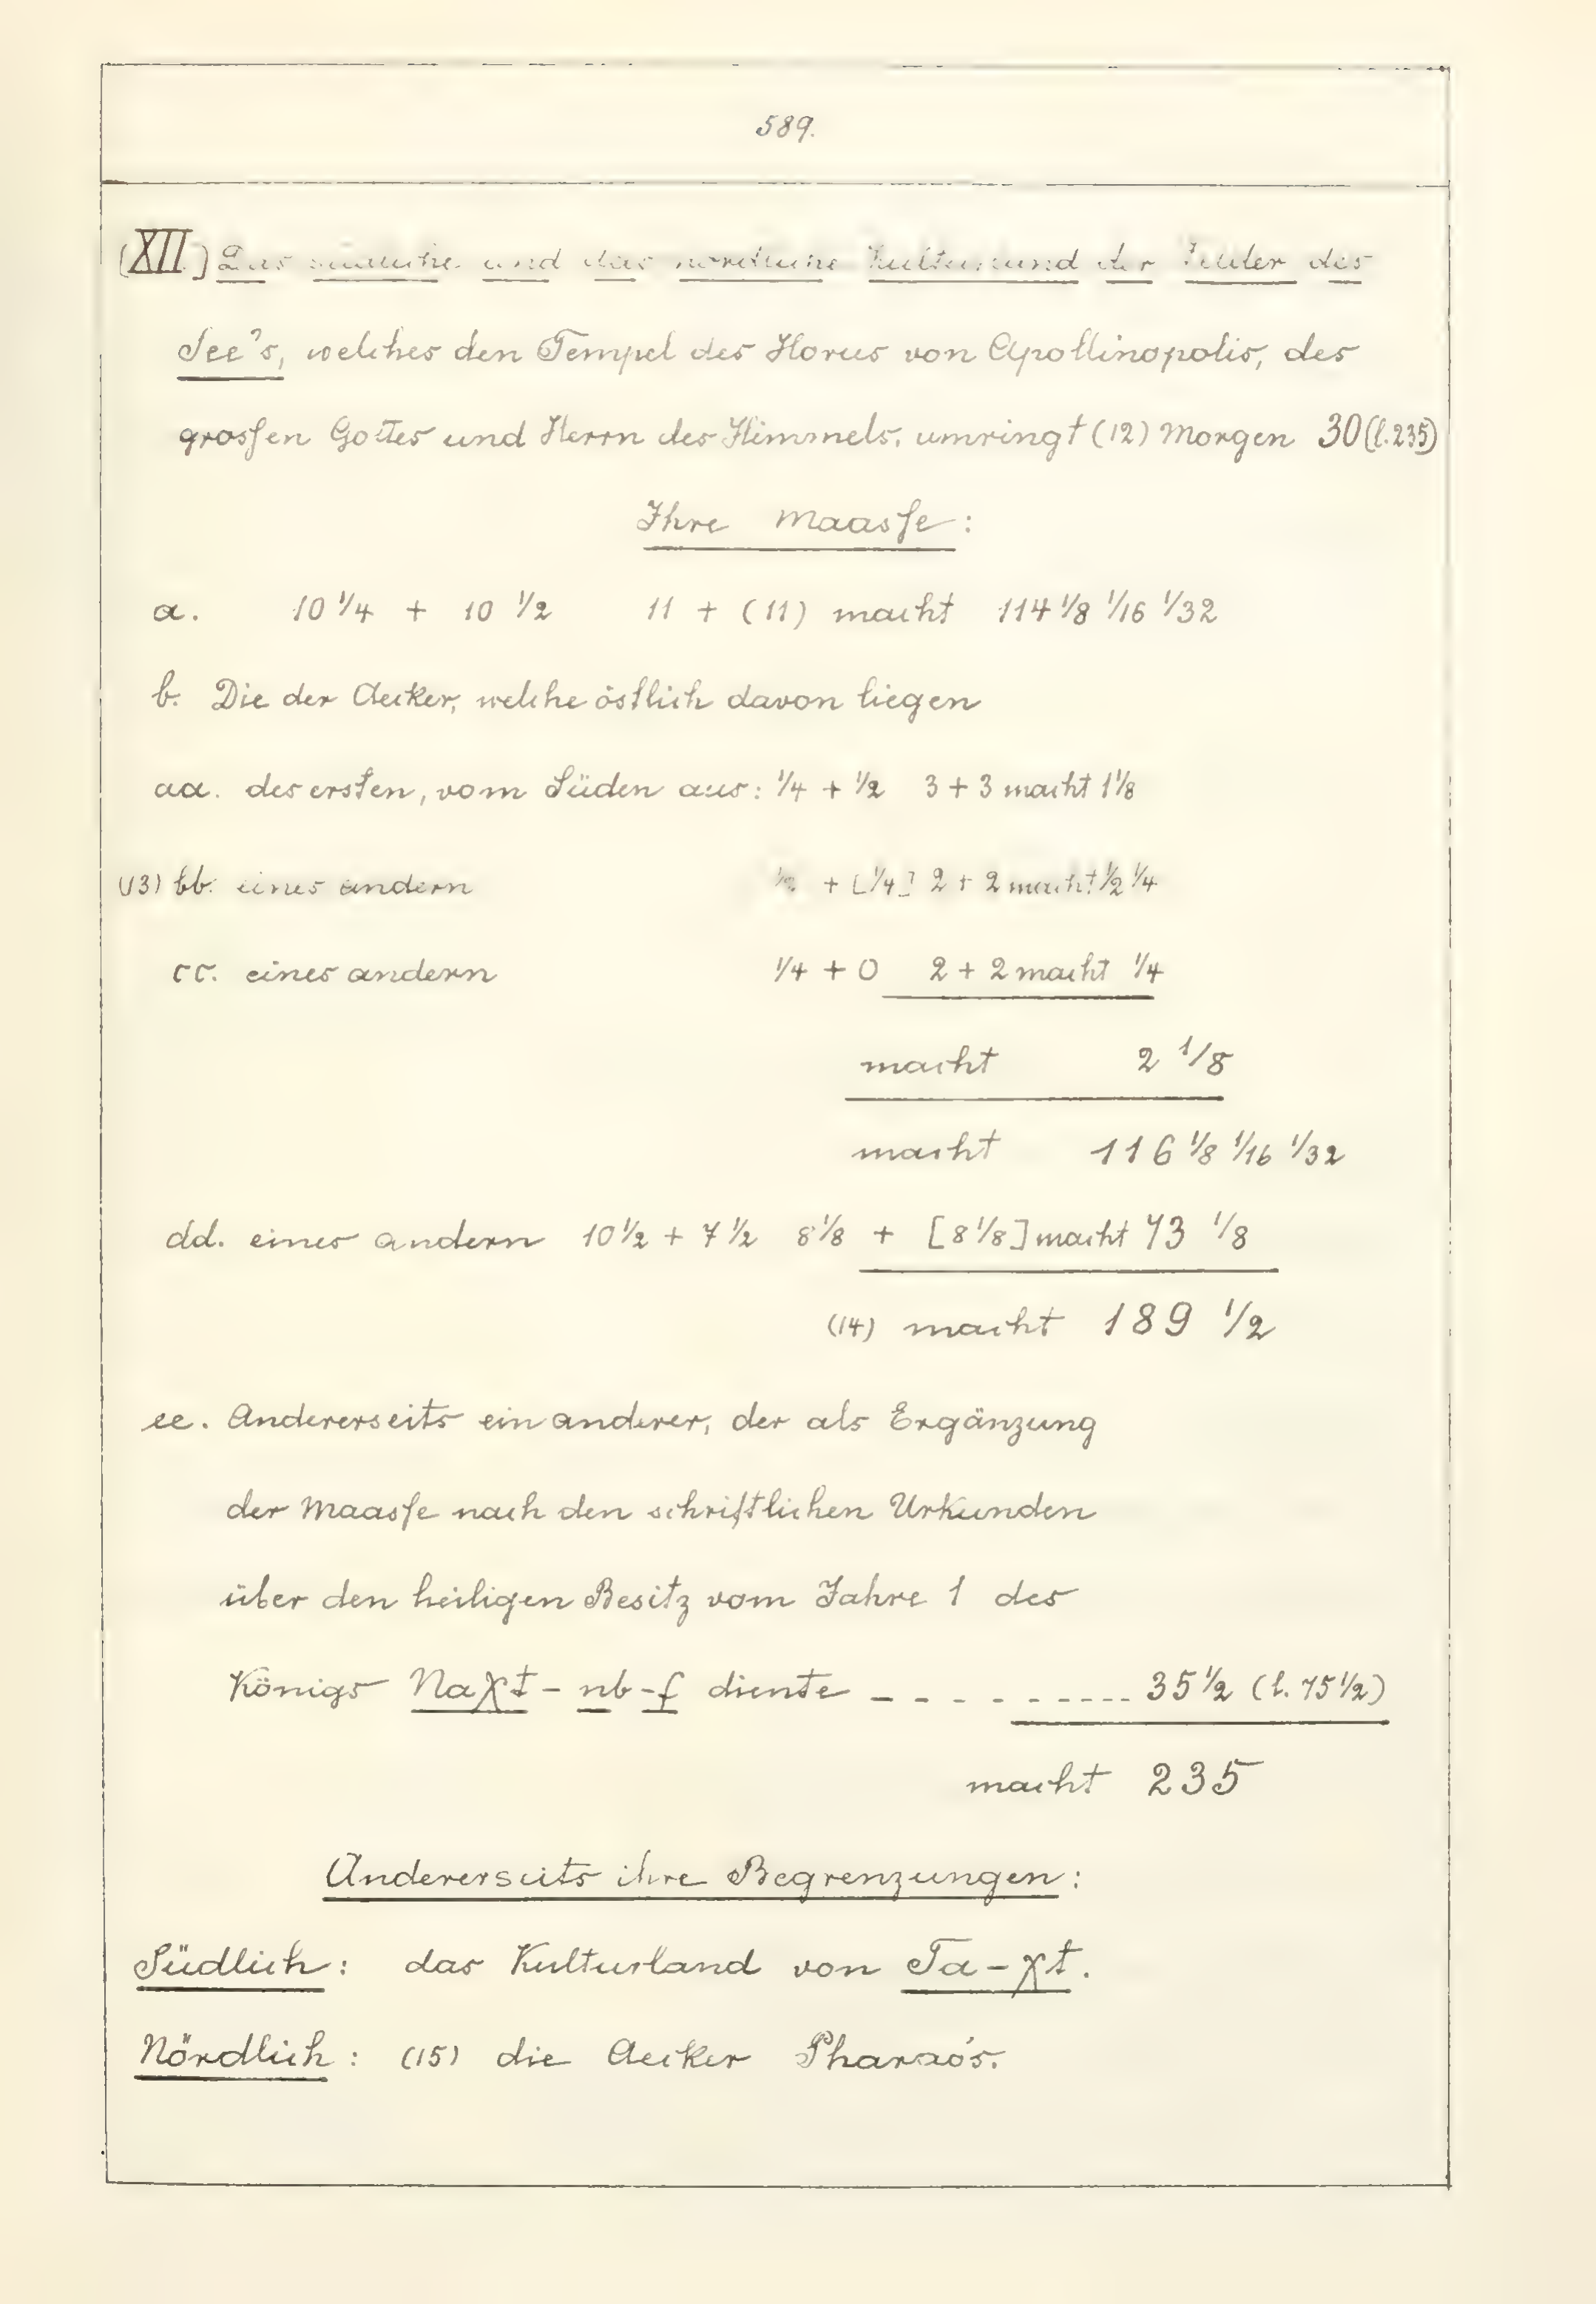 589.
(XII.) Das südliche und das nördliche Kulturland der Felder des
See's, welches den Tempel des Horus von Apollinopolis, des
grossen Gottes und Herrn des Himmels, umringt (12) Morgen 30 (l. 235)
Ihre Maasse:
a. 10 1/4 + 10 1/2 11 + (11) macht 114 1/8 1/16 1/32
b. Die der Aecker, welche östlich davon liegen
aa. des ersten, vom Süden aus: 1/4 + 1/2 3 + 3 macht 1 1/8
(13) bb. eines andern 1/2 + [1/4] 2 + 2 macht 1/2 1/4
cc. eines andern 1/4 + 0 2 + 2 macht 1/4
macht 2 1/8
macht 116 1/8 1/16 1/32
dd. eines andern 10 1/2 + 7 1/2 8 1/8 + [8 1/8] macht 73 1/8
(14) macht 189 1/2
ee. Andererseits ein anderer, der als Ergänzung
der Maasse nach den schriftlichen Urkunden
über den heiligen Besitz vom Jahre 1 des
Königs Naχt-nb-f diente - - - - - - - - - - 35 1/2 (l. 45 1/2)
macht 235
Andererseits ihre Begrenzungen:
Südlich: das Kulturland von Ta-χt.
Nördlich: (15) die Aecker Pharao's.